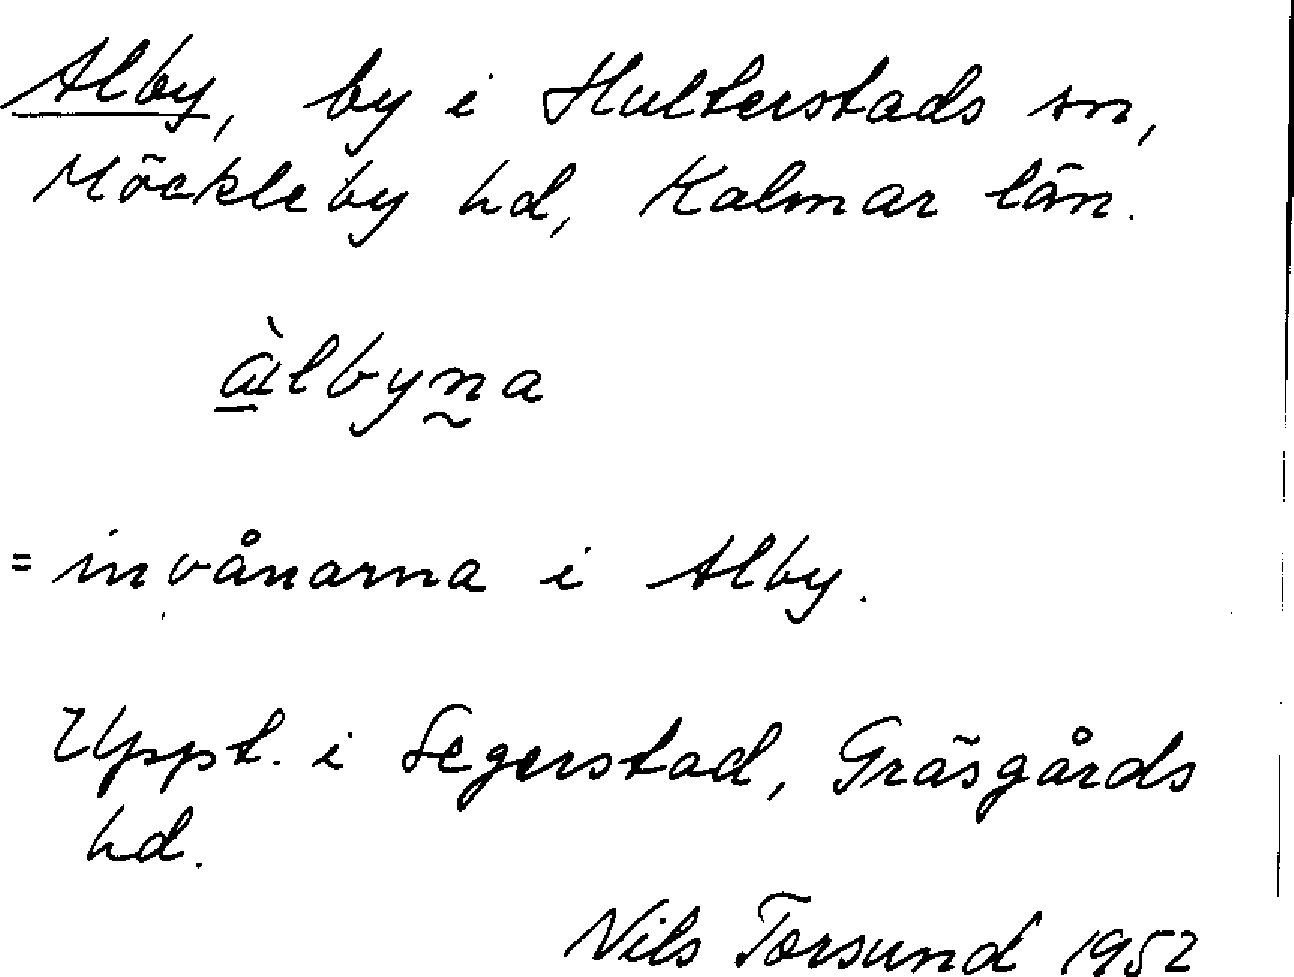 Alby, by i Hulterstads sn,
Möckleby hd, Kalmar län.
àlbyna
= invånarna i Alby.
Uppt. i Segerstad, Gräsgårds
hd.
Nils Torsund 1952